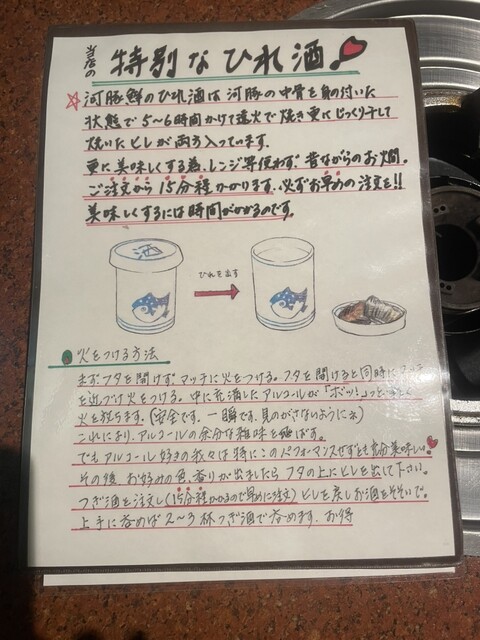 当店の 特別なひれ酒
☆河豚鮮のひれ酒は河豚の中骨を身の付いた
状態で5〜6時間かけて遠火で焼き更にじっくり干して
焼いたヒレが両方入っています。
更に美味しくする為、レンジ等使わず、昔ながらのお燗。
ご注文から15分程かかります。必ずお早めの注文を!!
美味しくするには時間がかかるのです。
酒
ひれを出す
火をつける方法
まずフタを開けず、マッチに火をつける。フタを開けると同時に
を近づけ火をつける。中に充満したアルコールが「ボッ!」っと
火を放ちます。(安全です。一瞬です。見のがさないようにネ)
これにより、アルコールの余分な雑味を飛ばす。
でもアルコール好きの我々は特にこのパフォーマンスせずとも充分美味しい
その後 お好みの色、香りが出ましたらフタの上にヒレを出して下さい。
つぎ酒を注文し(15分程かかるので早めに注文)ヒレを戻しお酒をそそいで。
上手に呑めば2〜3杯つぎ酒で呑めます。お得